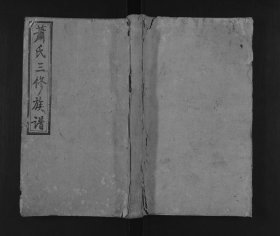 蕭氏三修族譜